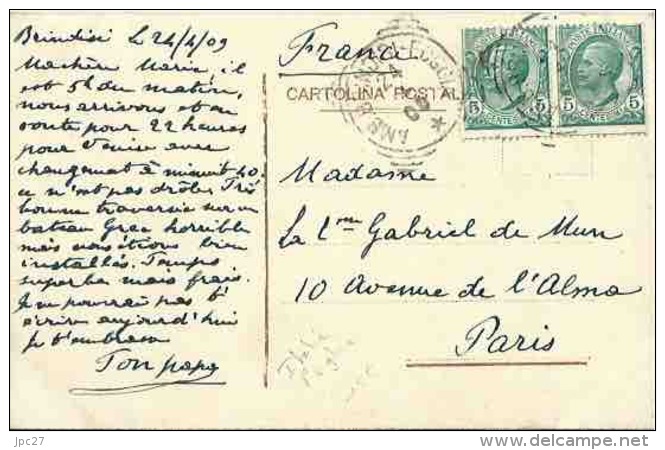 Brindisi le 24/4/09
Ma chère Marie, il
est 5h du matin,
nous arrivons et en
route pour 22 heures
pour Venise avec
changement à minuit 40.
ce n'est pas drôle. Très
bonne traversée sur un
bateau Grec horrible
mais nous étions bien
installés. Temps
superbe mais frais.
Je ne pourrai pas t'
écrire aujourd'hui
je t'embrasse
Ton papa
France
CARTOLINA POSTAL
POSTE ITALIANE
5 CENTESIMI 5
POSTE ITALIANE
5 CENTESIMI 5
Madame
La Ctesse Gabriel de Mun
10 Avenue de l'Alma
Paris
jpc27
www.delcampe.net